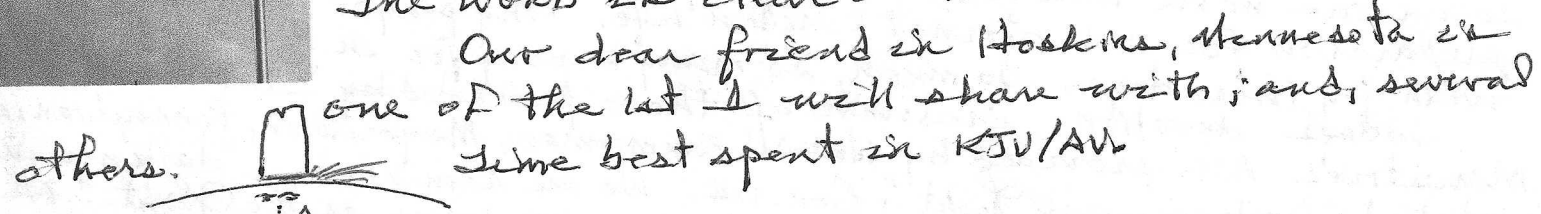 Our dear friend in Hoskins, Mennesota is
one of the 1st I will share with; and, several
others. Time best spent in KJV/AV.